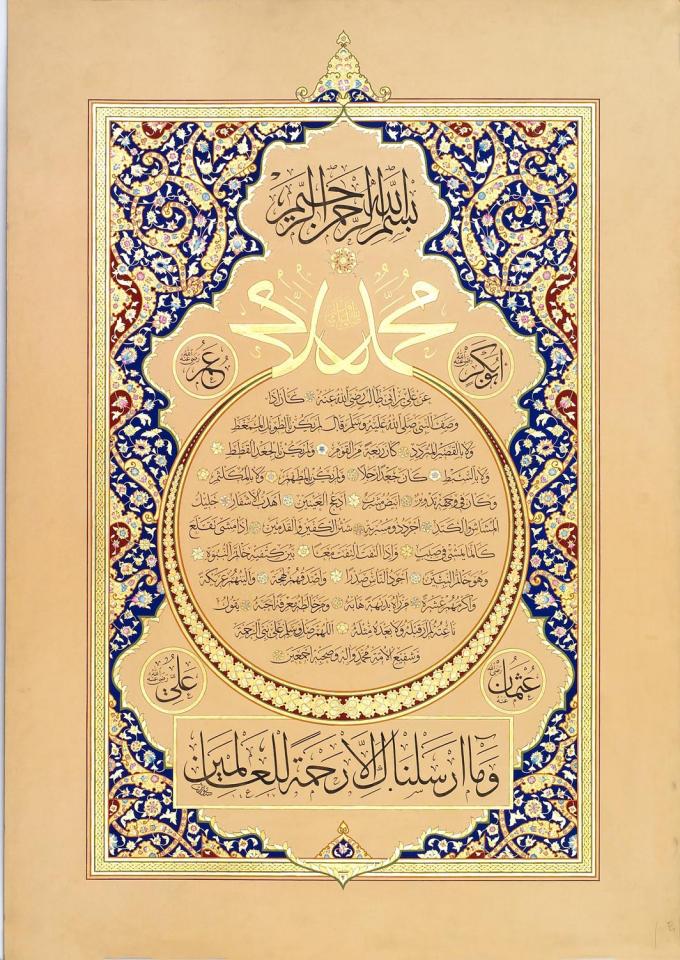 بسم الله الرحمن الرحيم
محمد
ابو بكر رضي الله عنه
عمر رضي الله عنه
عن علي بن أبي طالب رضي الله عنه كان إذا
وصف النبي صلى الله عليه وسلم قال لم يكن بالطويل الممغط
ولا بالقصير المتردد كان ربعة من القوم ولم يكن بالجعد القطط
ولا بالسبط كان جعدا رجلا ولم يكن بالمطهم ولا بالمكلثم
وكان في وجهه تدوير ابيض مشرب ادعج العينين اهدب الاشفار جليل
المشاش والكتد اجرد ذو مسربة شثن الكفين والقدمين اذا مشى تقلع
كانما يمشي في صبب واذا التفت التفت معا بين كتفيه خاتم النبوة
وهو خاتم النبيين اجود الناس صدرا واصدقهم لهجة والينهم عريكة
واكرمهم عشرة من رآه بديهة هابه ومن خالطه معرفة احبه يقول
ناعته لم ار قبله ولا بعده مثله اللهم صل وسلم على نبي الرحمة
وشفيع الامة محمد وآله وصحبه اجمعين
عثمان رضي الله عنه
علي رضي الله عنه
وما ارسلناك الا رحمة للعالمين